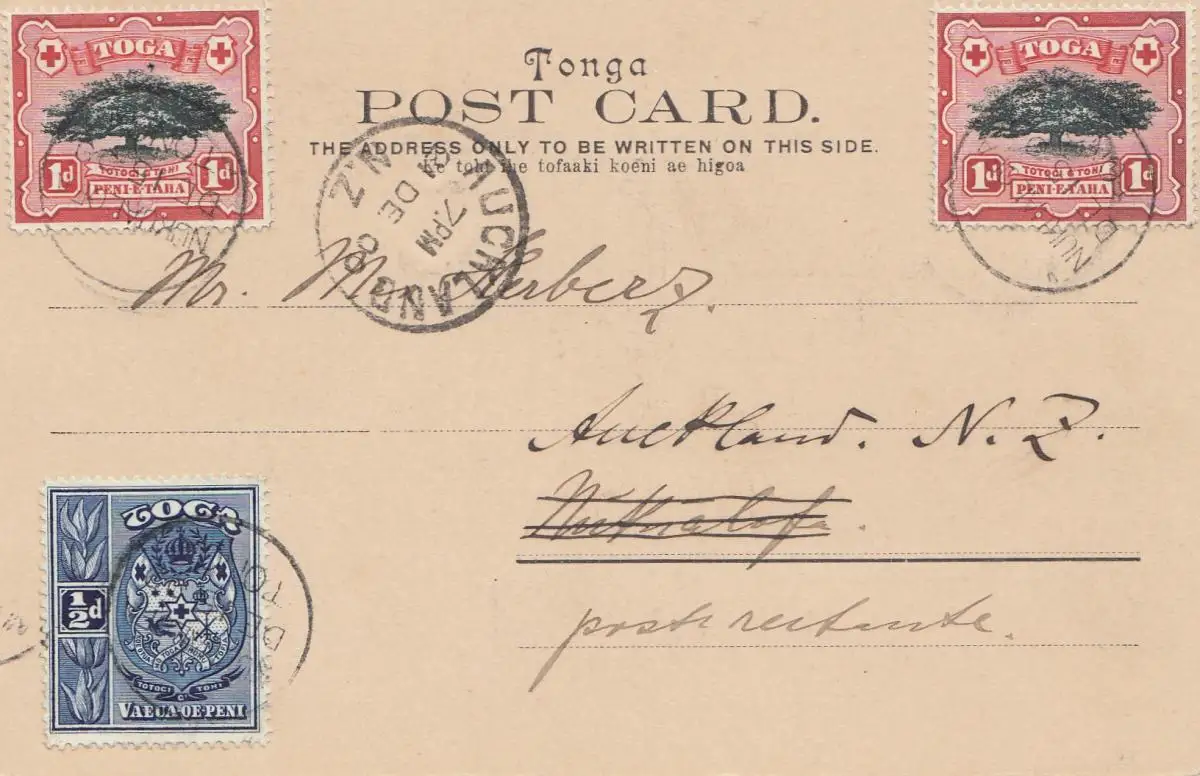 TOGA
1d TOTOGI E TONI 1d
PENI-E-TAHA
TOGA
1d TOTOGI E TONI 1d
PENI-E-TAHA
Tonga
POST CARD.
THE ADDRESS ONLY TO BE WRITTEN ON THIS SIDE.
Ke tohi he tofaaki koeni ae higoa
AUCKLAND N.Z
DE 00
7.PM
Mr. M. Herberz.
Auckland. N. Z.
Nukualofa.
poste restante.
TOGA
½d
TOTOGI E TONI
VAEUA-OE-PENI